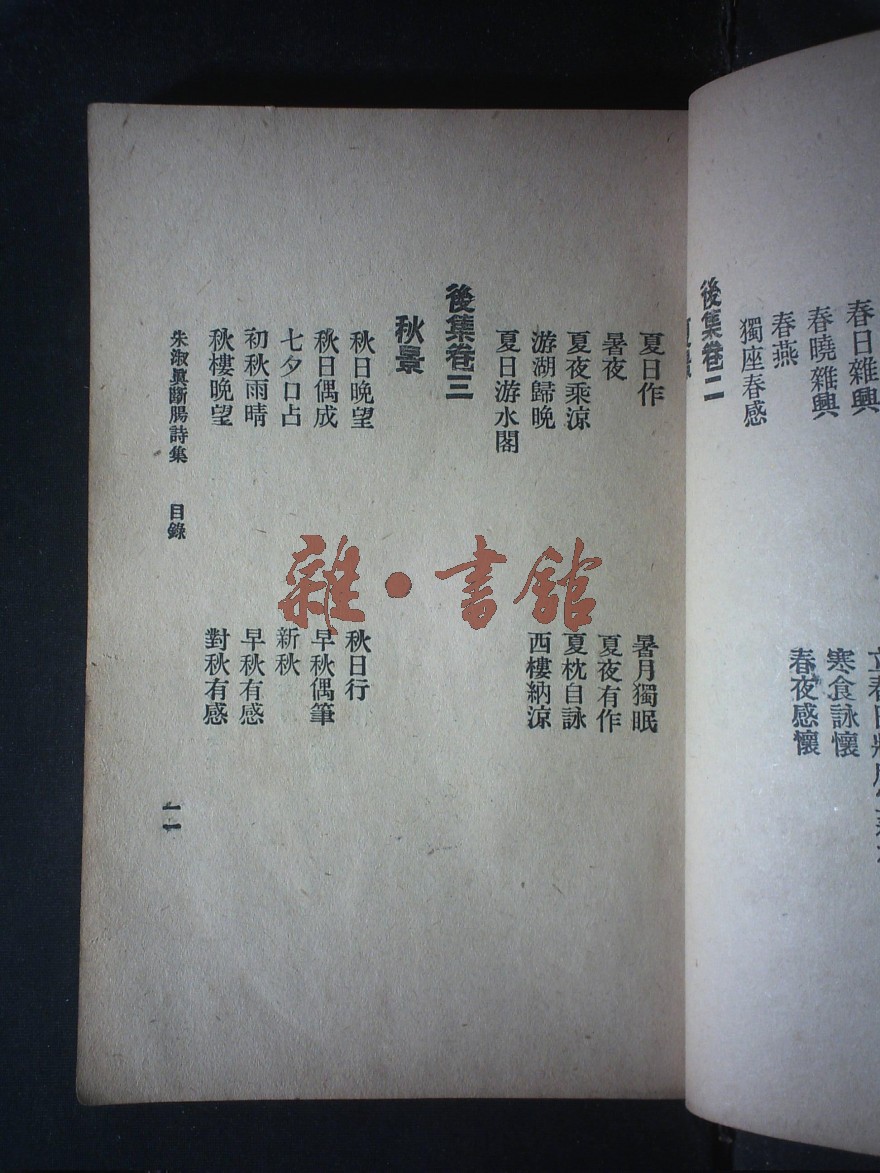 春日雜興
春曉雜興
寒食詠懷
春燕
春夜感懷
獨座春感
後集卷二
夏日作
暑月獨眠
暑夜
夏夜有作
夏夜乘涼
夏枕自詠
游湖歸晚
西樓納涼
夏日游水閣
後集卷三
秋景
秋日晚望
秋日行
秋日偶成
早秋偶筆
七夕口占
新秋
初秋雨晴
早秋有感
秋樓晚望
對秋有感
朱淑眞斷腸詩集 目錄
一一
雜·書館